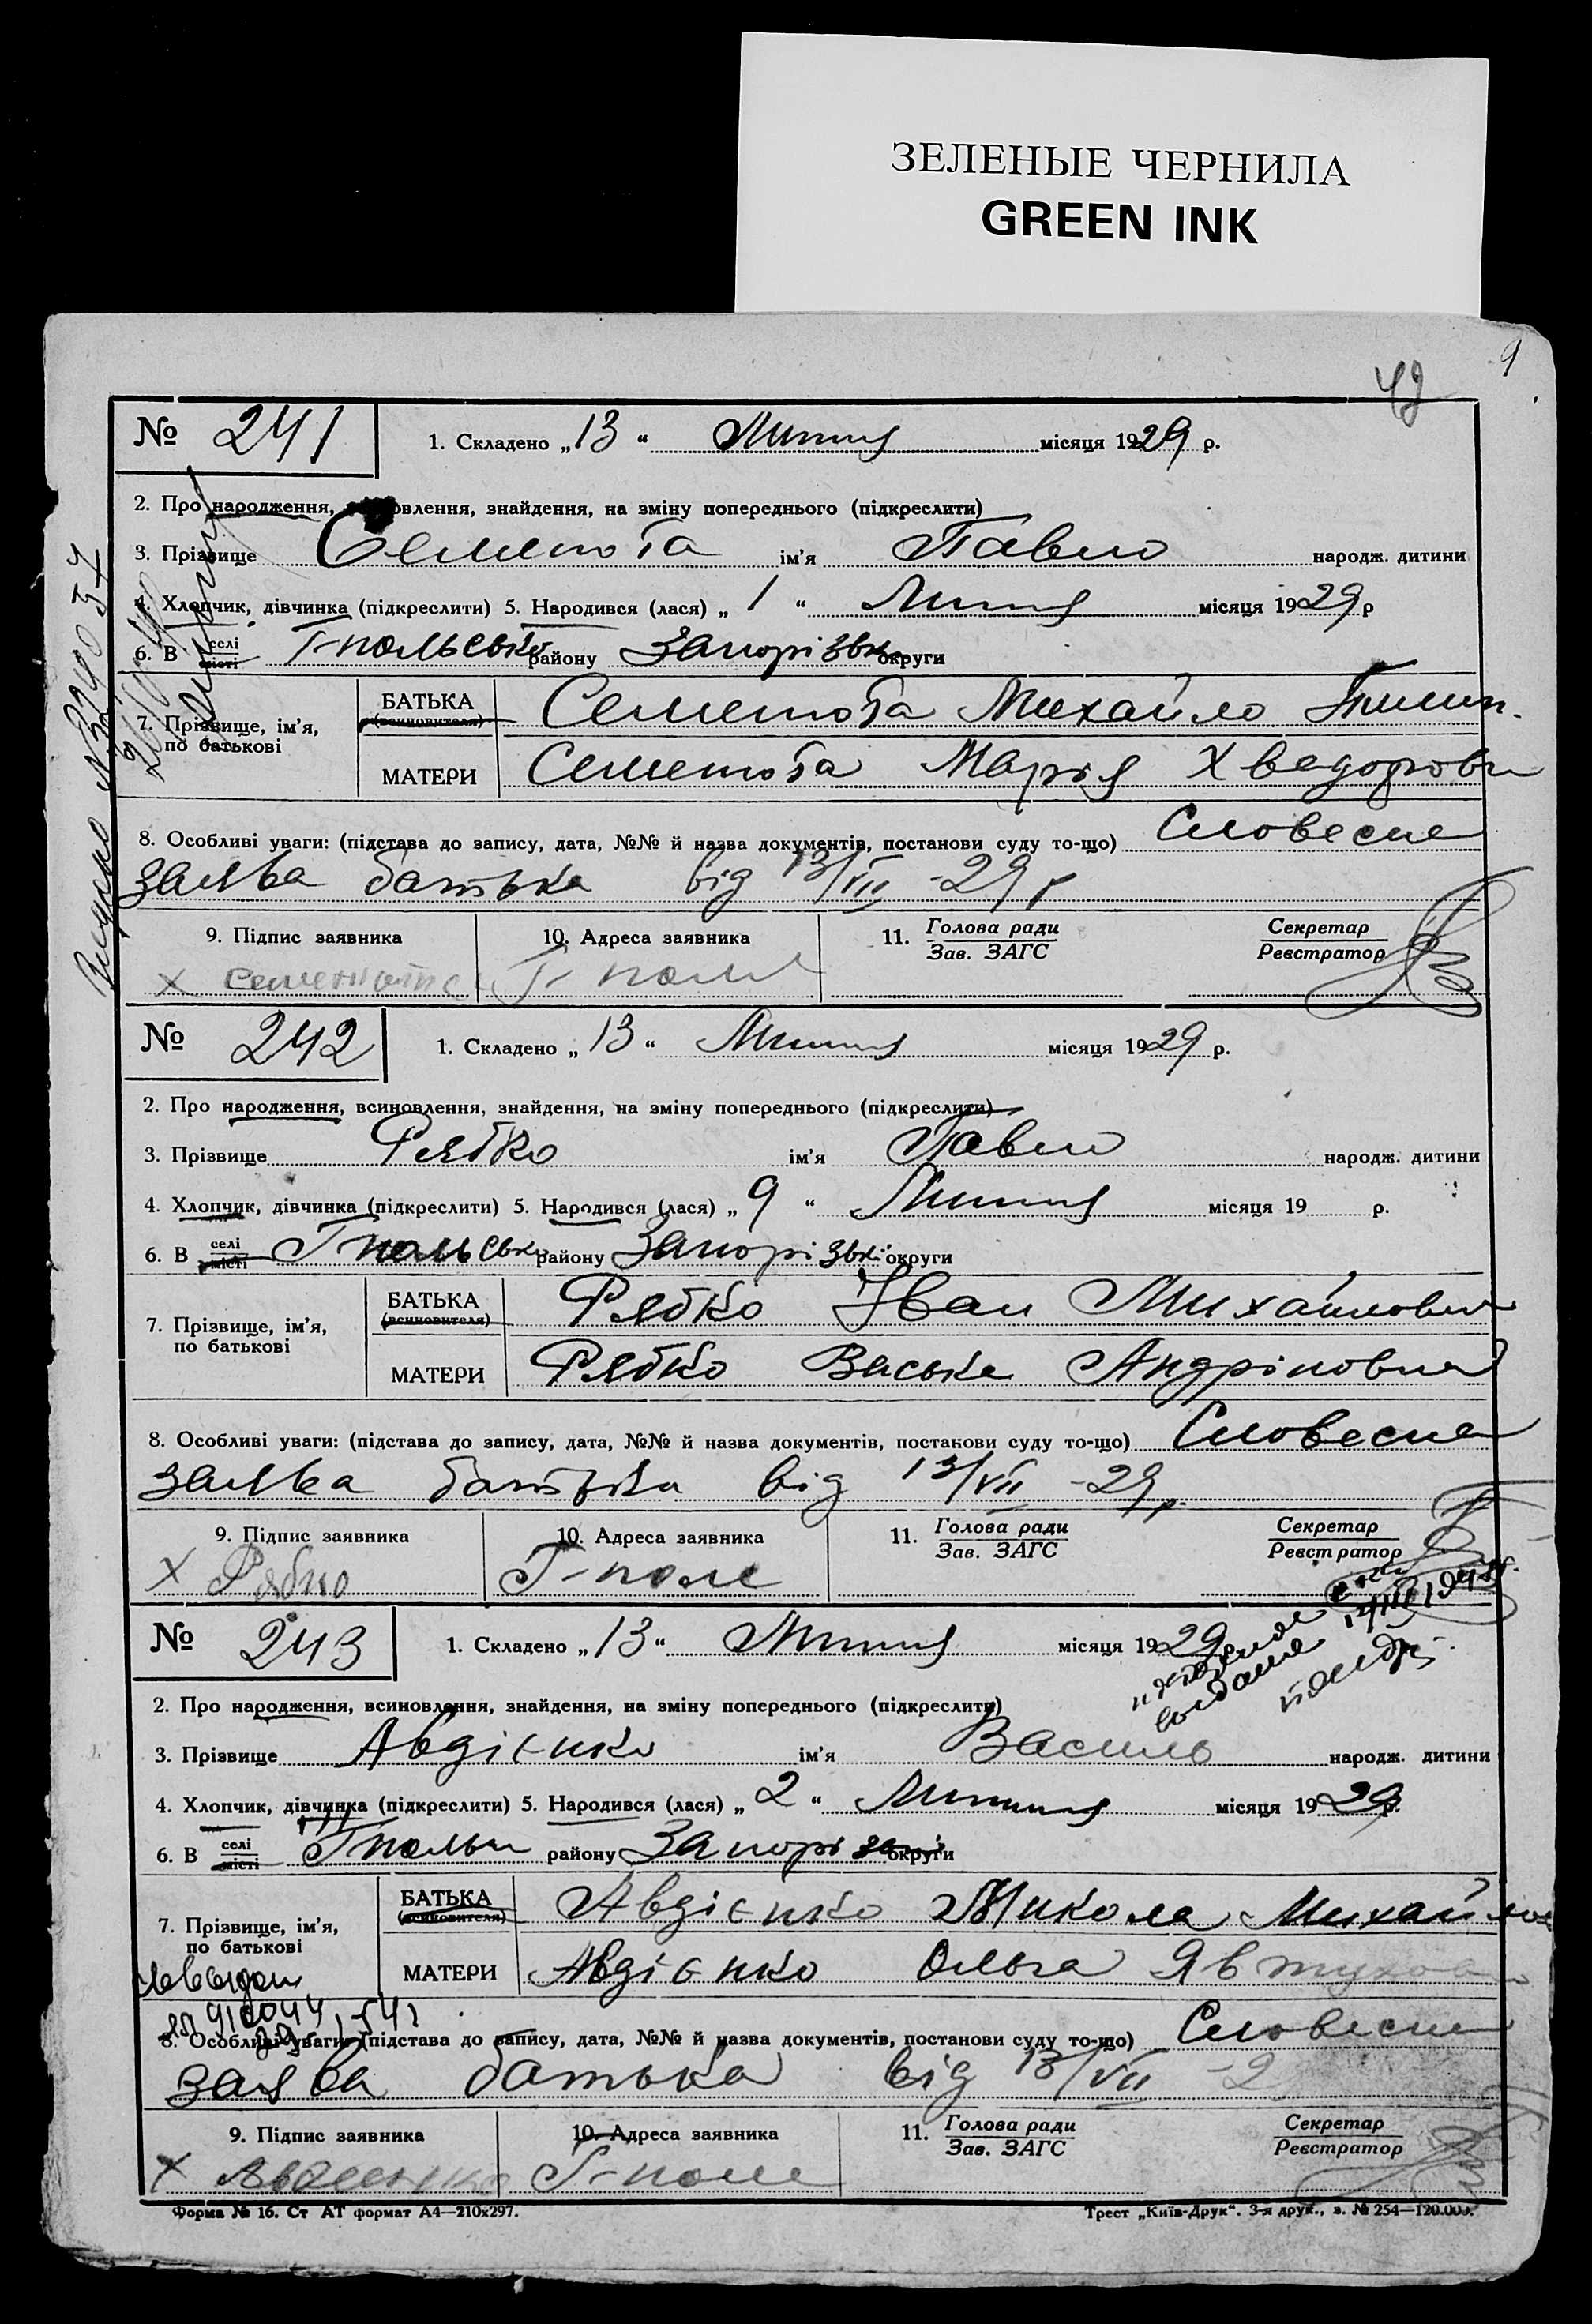 ЗЕЛЕНЫЕ ЧЕРНИЛА
GREEN INK
9
№ 241 1. Складено „13“ Липня місяця 1929 р.
2. Про народження, овлення, знайдення, на зміну попереднього (підкреслити)
3. Прізвище Семенота ім'я Павло народж. дитини
4. Хлопчик, дівчинка (підкреслити) 5. Народився (лася) „1“ Липня місяця 1929 р
6. В селі місті Г-польсько району Запорізьк округи
7. Прізвище, ім'я, по батькові
БАТЬКА (всиновителя) Семенота Михайло
МАТЕРИ Семенота Марія Хведоровн
8. Особливі уваги: (підстава до запису, дата, №№ й назва документів, постанови суду то-що) Словесна
заява батька від 13/VII -29 р
9. Підпис заявника 10. Адреса заявника 11. Голова ради Зав. ЗАГС Секретар Реєстратор
х Семенота Г-поле
№ 242 1. Складено „13“ Липня місяця 1929 р.
2. Про народження, всиновлення, знайдення, на зміну попереднього (підкреслити)
3. Прізвище Рябко ім'я Павло народж. дитини
4. Хлопчик, дівчинка (підкреслити) 5. Народився (лася) „9“ Липня місяця 19 р.
6. В селі місті Г-польськ району Запорізькі округи
7. Прізвище, ім'я, по батькові
БАТЬКА (всиновителя) Рябко Іван Михайлович
МАТЕРИ Рябко Васька Андріповна
8. Особливі уваги: (підстава до запису, дата, №№ й назва документів, постанови суду то-що) Словесна
заява батька від 13/VII -29 р.
9. Підпис заявника 10. Адреса заявника 11. Голова ради Зав. ЗАГС Секретар Реєстратор
х Рябко Г-поле
№ 243 1. Складено „13“ Липня місяця 1929
2. Про народження, всиновлення, знайдення, на зміну попереднього (підкреслити)
3. Прізвище Авдієнко ім'я Василь народж. дитини
4. Хлопчик, дівчинка (підкреслити) 5. Народився (лася) „2“ Липня місяця 1929 р.
6. В селі місті Г-польськ району Запорізькі округи
7. Прізвище, ім'я, по батькові
БАТЬКА (всиновителя) Авдієнко Микола Михайлов
МАТЕРИ Авдієнко Ольга Явтухов
8. Особливі уваги: (підстава до запису, дата, №№ й назва документів, постанови суду то-що) Словесна
заява батька від 13/VII -2
9. Підпис заявника 10. Адреса заявника 11. Голова ради Зав. ЗАГС Секретар Реєстратор
х Г-поле
Форма № 16. Ст АТ формат А4—210х297. Трест „Київ-Друк“. 3-я друк., з. № 254—120.000.